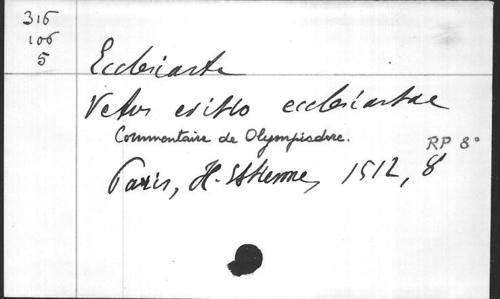 316
106
5
Ecclesiaste
Vetus editio ecclesiastae
Commentaire de Olympiodore.
RP 8°
Paris, H. Estienne, 1512, 8°